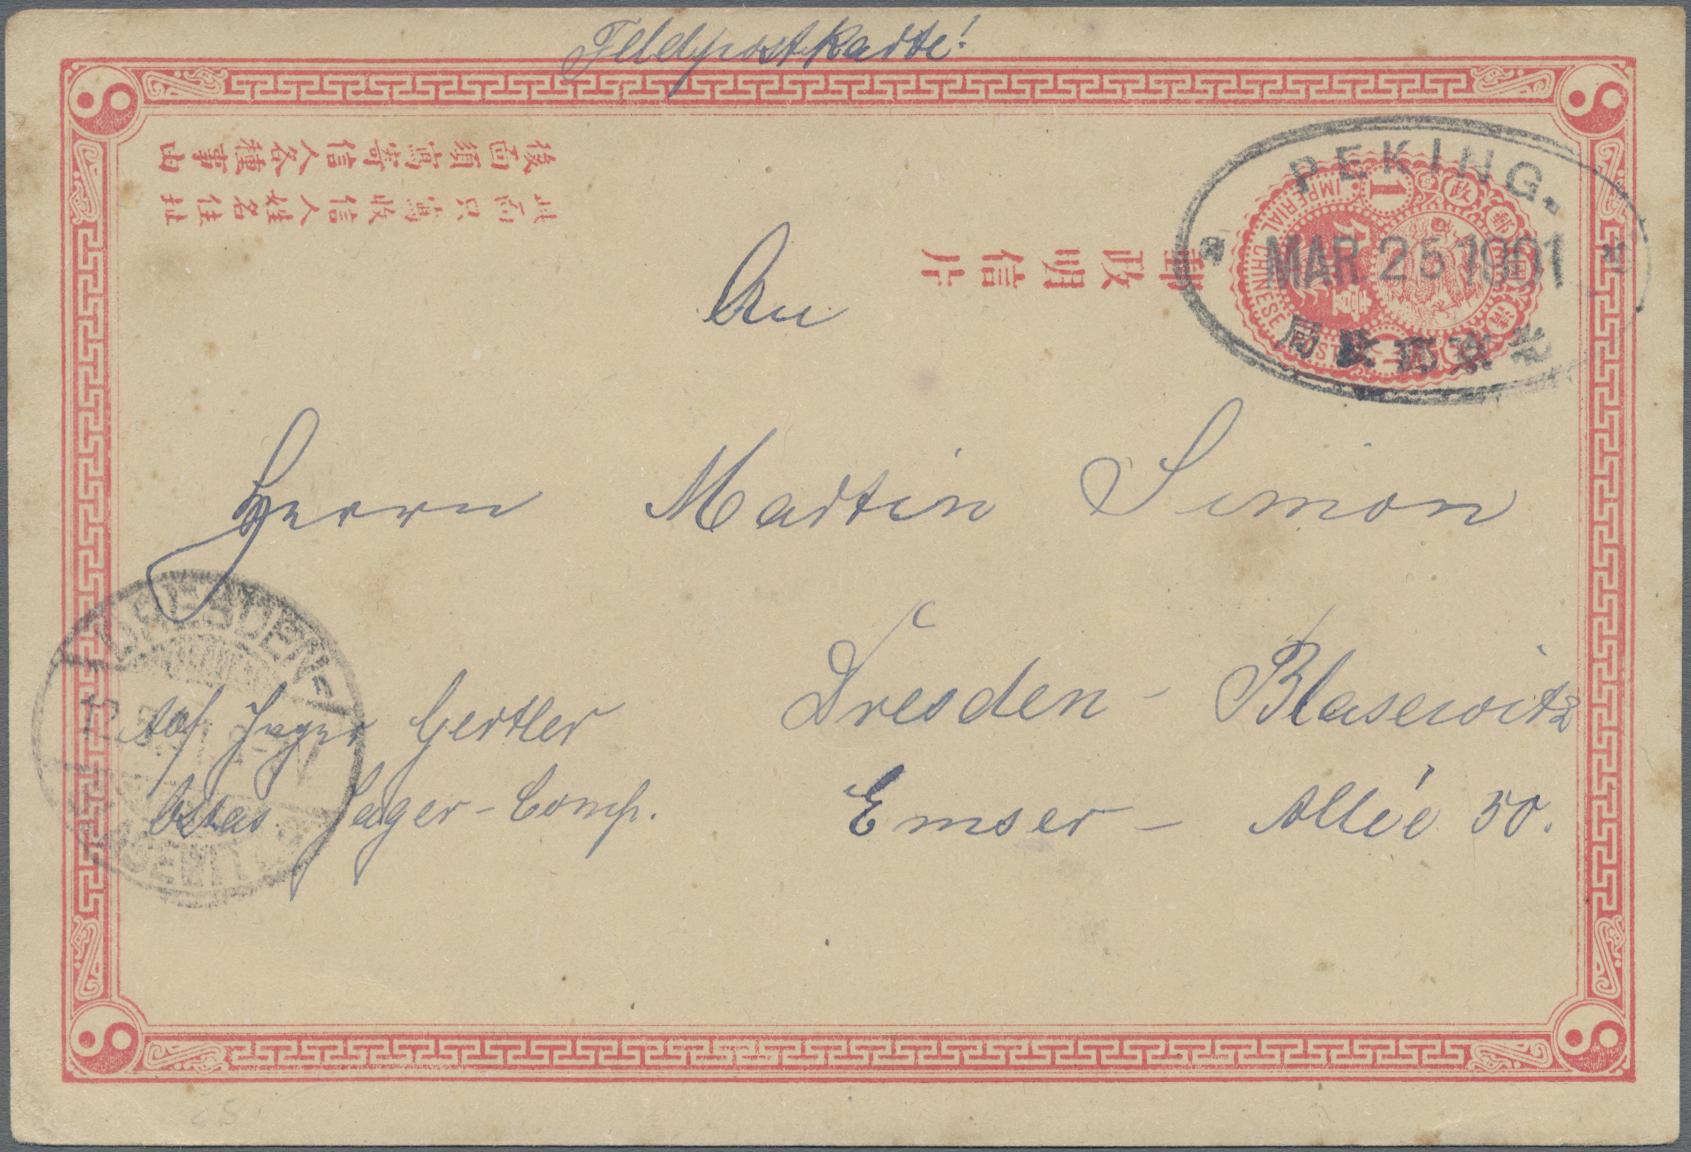 Feldpostkarte!
後面須寫寄信人各種事由
此面只寫收信人姓名住址
華政明信片
PEKING.
MAR 25 1901
北京郵政局
1
IMPERIAL CHINESE POST
An
Herrn Martin Simon
DRESDEN-
Dresden-Blasewitz
Jäger Gertler
Emser-Allée 50.
Ostas. Jäger-Comp.